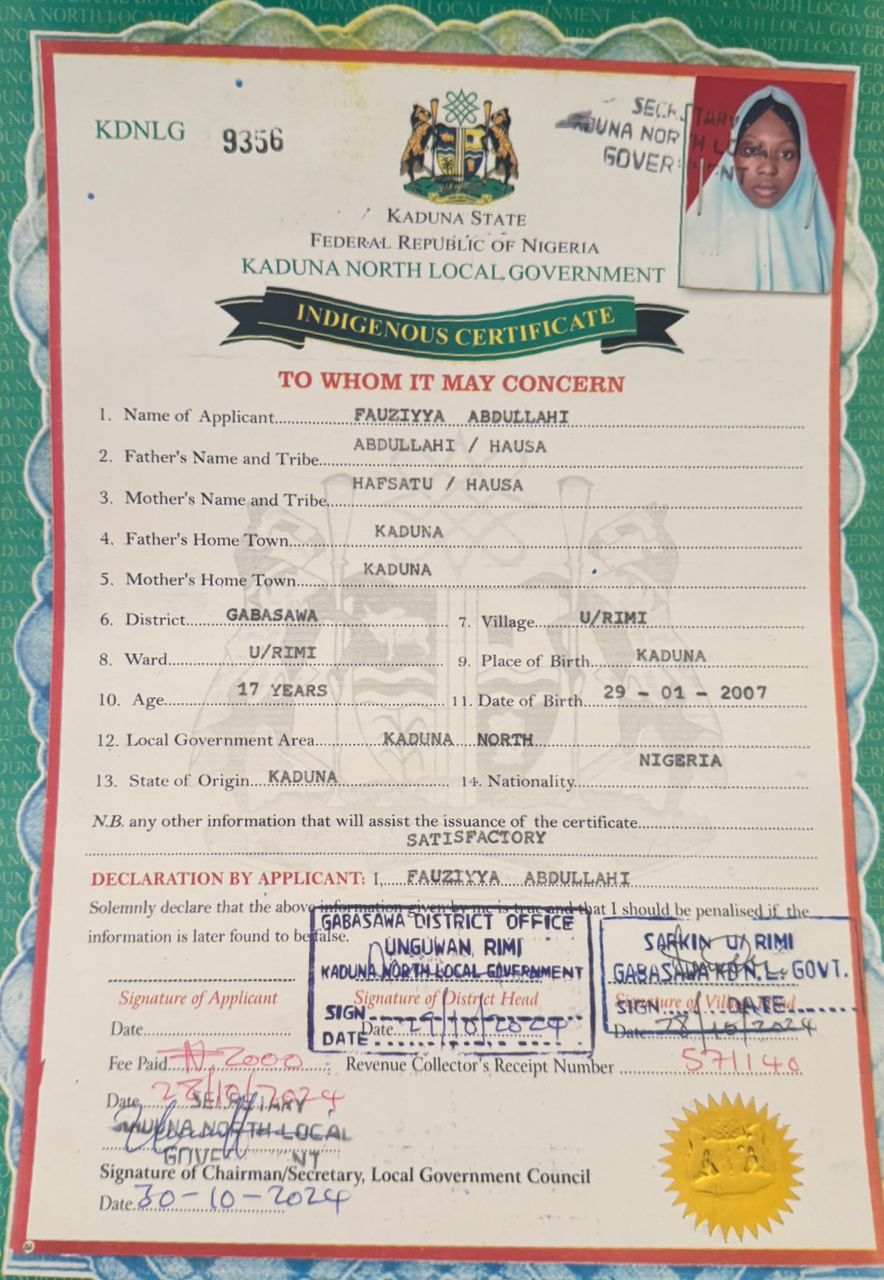 KDNLG 9356
SECRETARY
KADUNA NORTH LOCAL
GOVERNMENT
KADUNA STATE
FEDERAL REPUBLIC OF NIGERIA
KADUNA NORTH LOCAL GOVERNMENT
INDIGENOUS CERTIFICATE
TO WHOM IT MAY CONCERN
1. Name of Applicant FAUZIYYA ABDULLAHI
2. Father's Name and Tribe ABDULLAHI / HAUSA
3. Mother's Name and Tribe HAFSATU / HAUSA
4. Father's Home Town KADUNA
5. Mother's Home Town KADUNA
6. District GABASAWA 7. Village U/RIMI
8. Ward U/RIMI 9. Place of Birth KADUNA
10. Age 17 YEARS 11. Date of Birth 29 - 01 - 2007
12. Local Government Area KADUNA NORTH
13. State of Origin KADUNA 14. Nationality NIGERIA
N.B. any other information that will assist the issuance of the certificate
SATISFACTORY
DECLARATION BY APPLICANT: I, FAUZIYYA ABDULLAHI
Solemnly declare that the above information given by me is true and that I should be penalised if the
information is later found to be false.
GABASAWA DISTRICT OFFICE
UNGUWAN RIMI
KADUNA NORTH LOCAL GOVERNMENT
SIGN
DATE
SARKIN U/RIMI
GABASAWA KD N.L. GOVT.
SIGN DATE
Signature of Applicant Signature of District Head Signature of Village Head
Date Date 29/10/2024 Date 28/10/2024
Fee Paid ₦2000 Revenue Collector's Receipt Number 571140
Date 28/10/2024
SECRETARY
KADUNA NORTH LOCAL
GOVERNMENT
Signature of Chairman/Secretary, Local Government Council
Date 30-10-2024